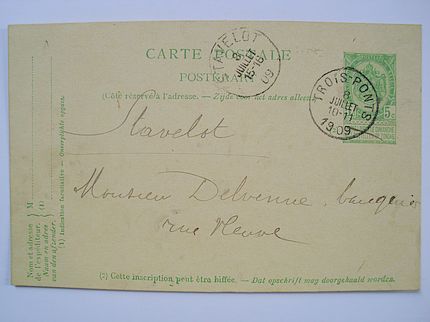 CARTE POSTALE
POSTKAART
(Côté réservé à l'adresse. — Zijde voor het adres alleen
STAVELOT
8
JUILLET
15-16
09
TROIS-PONTS
8
JUILLET
10-11
1909
5c
Stavelot
Monsieur Delvenne, banquier
rue Neuve
(2) Cette inscription peut être biffée. — Dat opschrift mag doorgehaald worden.
Nom et adresse
de l'expéditeur.
Naam en adres
van den afzender.
M
(1)
(1) Indication facultative — Onverplichte opgave.